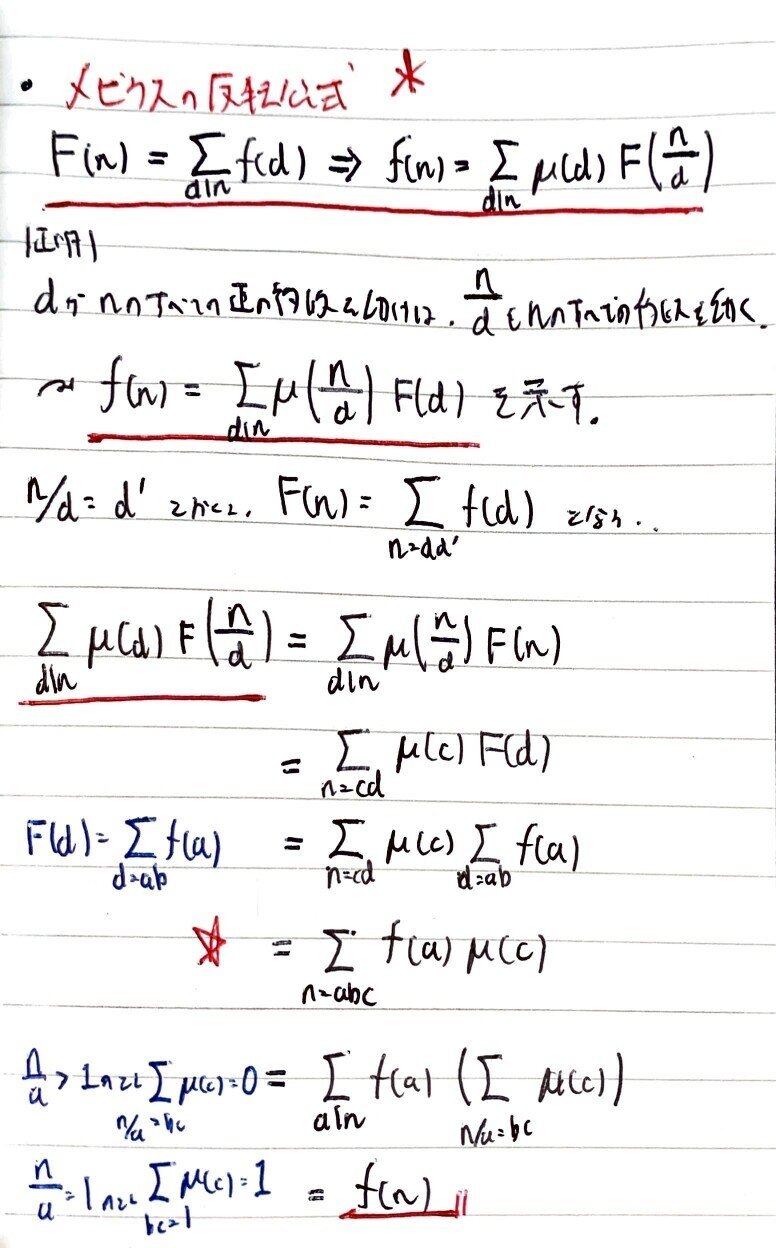 ・メビウスの反転公式 ☆
F(n) = Σ_{d|n} f(d) ⇒ f(n) = Σ_{d|n} μ(d) F(n/d)
証明
dがnのすべての正の約数を動けば、n/dもnのすべての約数を動く.
〜 f(n) = Σ_{d|n} μ(n/d) F(d) を示す.
n/d = d' とおくと, F(n) = Σ_{n=dd'} f(d) となり..
Σ_{d|n} μ(d) F(n/d) = Σ_{d|n} μ(n/d) F(n)
= Σ_{n=cd} μ(c) F(d)
F(d) = Σ_{d=ab} f(a) = Σ_{n=cd} μ(c) Σ_{d=ab} f(a)
☆ = Σ_{n=abc} f(a) μ(c)
n/a > 1のとき Σ_{n/a=bc} μ(c) = 0 = Σ_{a|n} f(a) (Σ_{n/a=bc} μ(c))
n/a = 1のとき Σ_{bc=1} μ(c) = 1 = f(n)